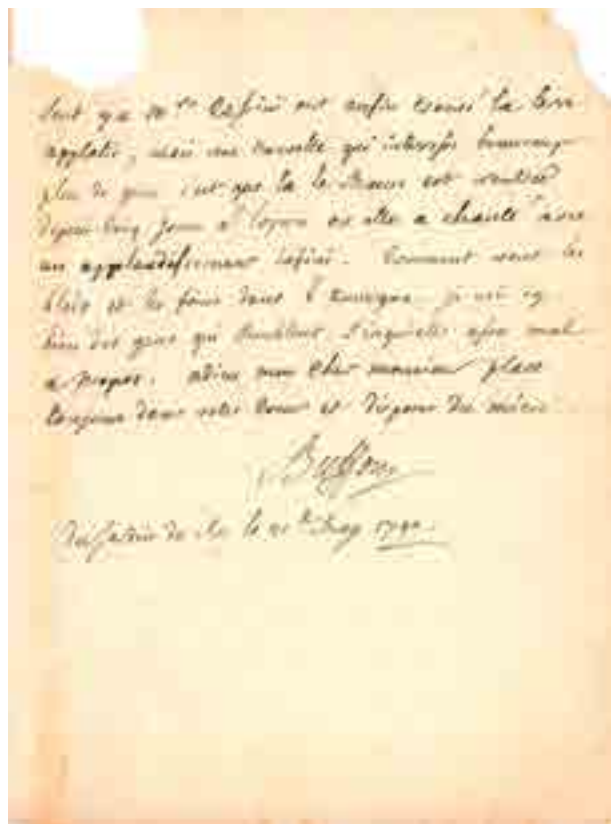 que mrs Cassini ont enfin trouvé la terre
applatie, mais une nouvelle qui interesse beaucoup
plus de gens c'est que la le Maure est rentrée
depuis cinq jours a l'opera où elle a chanté avec
un applaudissement infini. Comment vont les
bleds et les foins dans l'Auvergne je vois icy
bien des gens qui mal
a propos. adieu mon cher monsieur place
toujours dans votre coeur et disposez du mien.
Buffon
Du Jardin du Roi le may 1740.